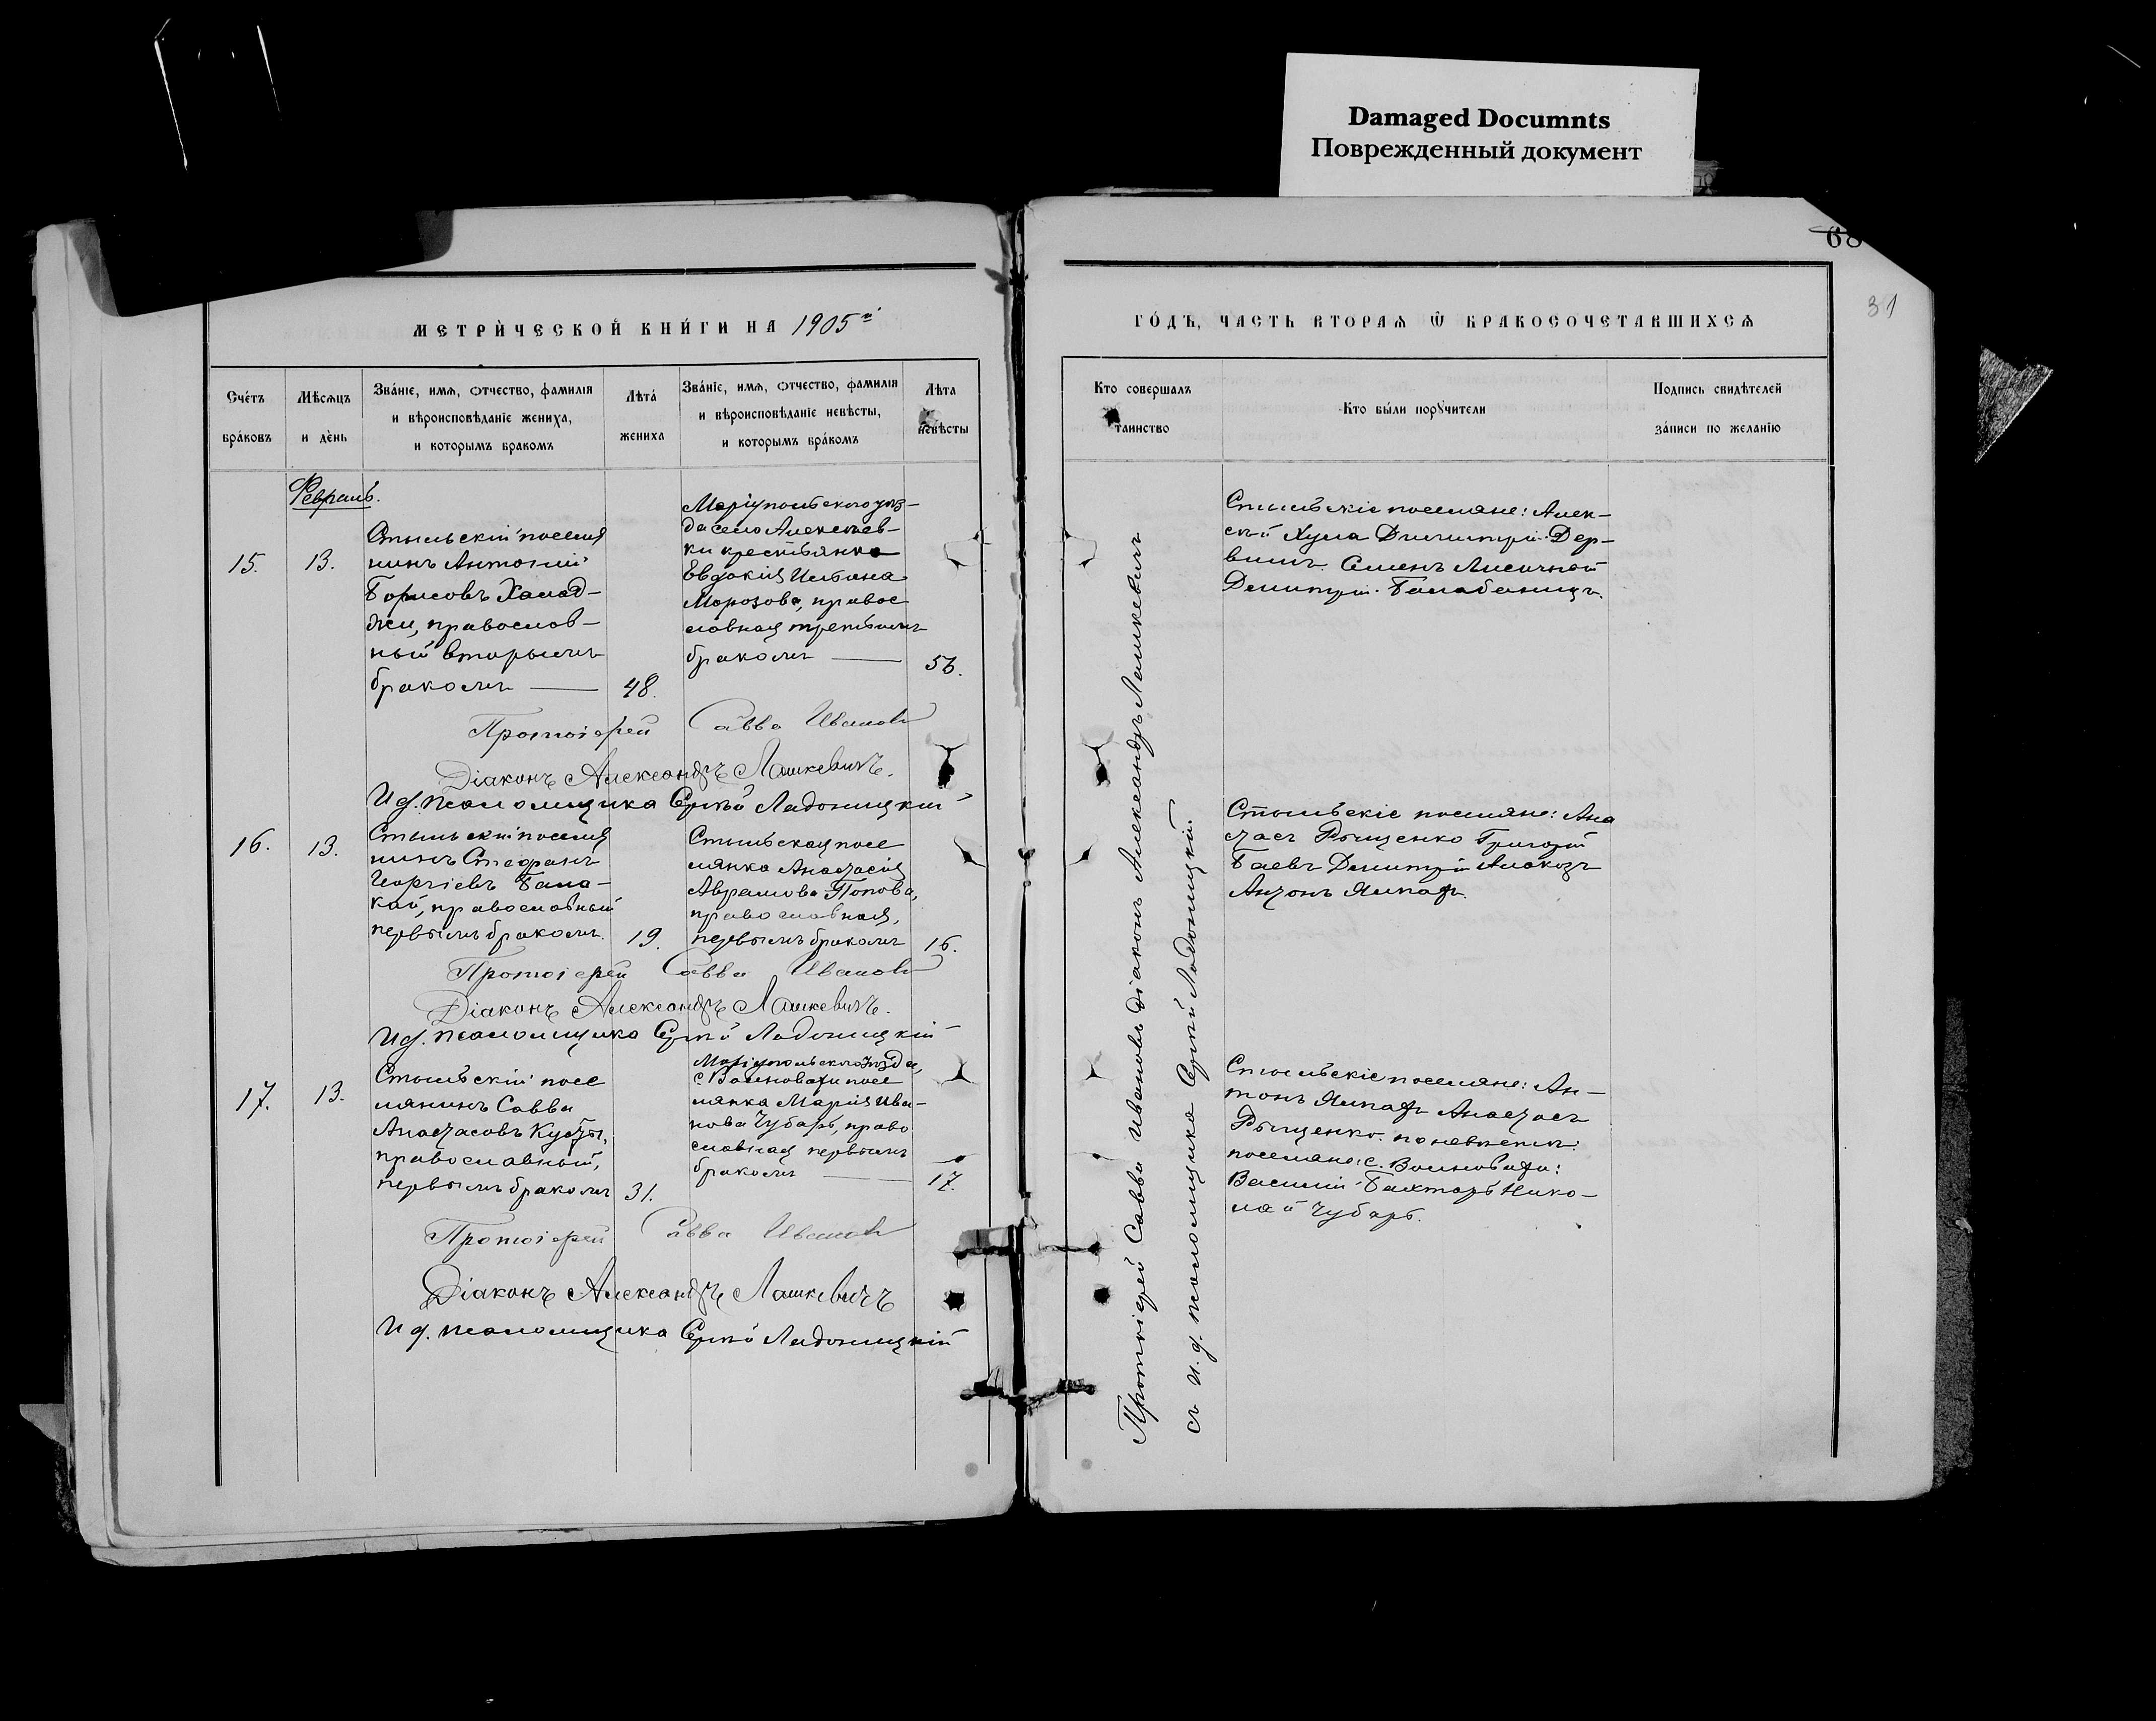 Damaged Documnts
Поврежденный документ
68
31
МЕТРИ́ЧЕСКОЙ КНИ́ГИ НА 1905й
ГО́ДЪ, ЧАСТЬ ВТОРАѦ Ѿ БРАКОСОЧЕТАВШИХСѦ
Сче́тъ бра́ковъ
Мѣсѧцъ и дѐнь
Зва́нїе, имѧ, ѻтчество, фамилїѧ
и вѣроисповѣданїе жениха,
и которымъ бракомъ
Лѣта́ жениха
Зва́нїе, имѧ, ѻтчество, фамилїѧ
и вѣроисповѣданїе невѣсты,
и которымъ бра́комъ
Лѣта невѣсты
Кто совершалъ таинство
Кто бы́ли порꙋчители
Подпись свидѣтелей
за́писи по желанїю
Февраль.
15.
13.
Стыльскій поселя
нинъ Антоній
Борисовъ Халад-
жи, православ-
ный вторымъ
бракомъ —
48.
Маріупольскаго уѣз-
да села Алексѣев-
ки крестьянка
Евдокія Ильина
Морозова, правос
лавная третьимъ
бракомъ —
56.
Стыльскіе поселяне: Алек-
сѣй Хула Димитрій Дер-
вишъ Семенъ Лисичной
Димитрій
Протоіерей Савва Ивановъ
Діаконъ Александръ Лашкевичъ.
И д. псаломщика Сергѣй Ладоницкій
16.
13.
Стыльскій поселя
нинъ Стефанъ
Георгіевъ Бала-
кай, православный
первымъ бракомъ.
19.
Стыльская посе
лянка Анастасія
Аврамова Попова,
православная,
первымъ бракомъ
16.
Стыльскіе поселяне: Ана
стасъ Рыщенко Григорій
Баевъ Димитрій
Антонъ Ялпахъ
Протоіерей Савва Ивановъ
Діаконъ Александръ Лашкевичъ.
И д. псаломщика Сергѣй Ладоницкій
17.
13.
Стыльскій посе
лянинъ Савва
Анастасовъ
православный,
первымъ бракомъ
31.
Маріупольскаго уѣзда,
с Волновахи посе
лянка Марія Ива-
нова Чубарь, право
славная первымъ
бракомъ —
17.
Стыльскіе поселяне: Ан-
тонъ Ялпахъ Анастасъ
Рыщенко. по невѣстѣ:
поселяне: с. Волновахи:
Василій Бахтарь Нико-
лай Чубарь.
Протоіерей Савва Ивановъ
Діаконъ Александръ Лашкевичъ
И д. псаломщика Сергѣй Ладоницкій
Протоіерей Савва Ивановъ Діаконъ Александръ Лашкевичъ
съ и. д. псаломщика Сергѣй Ладоницкій.